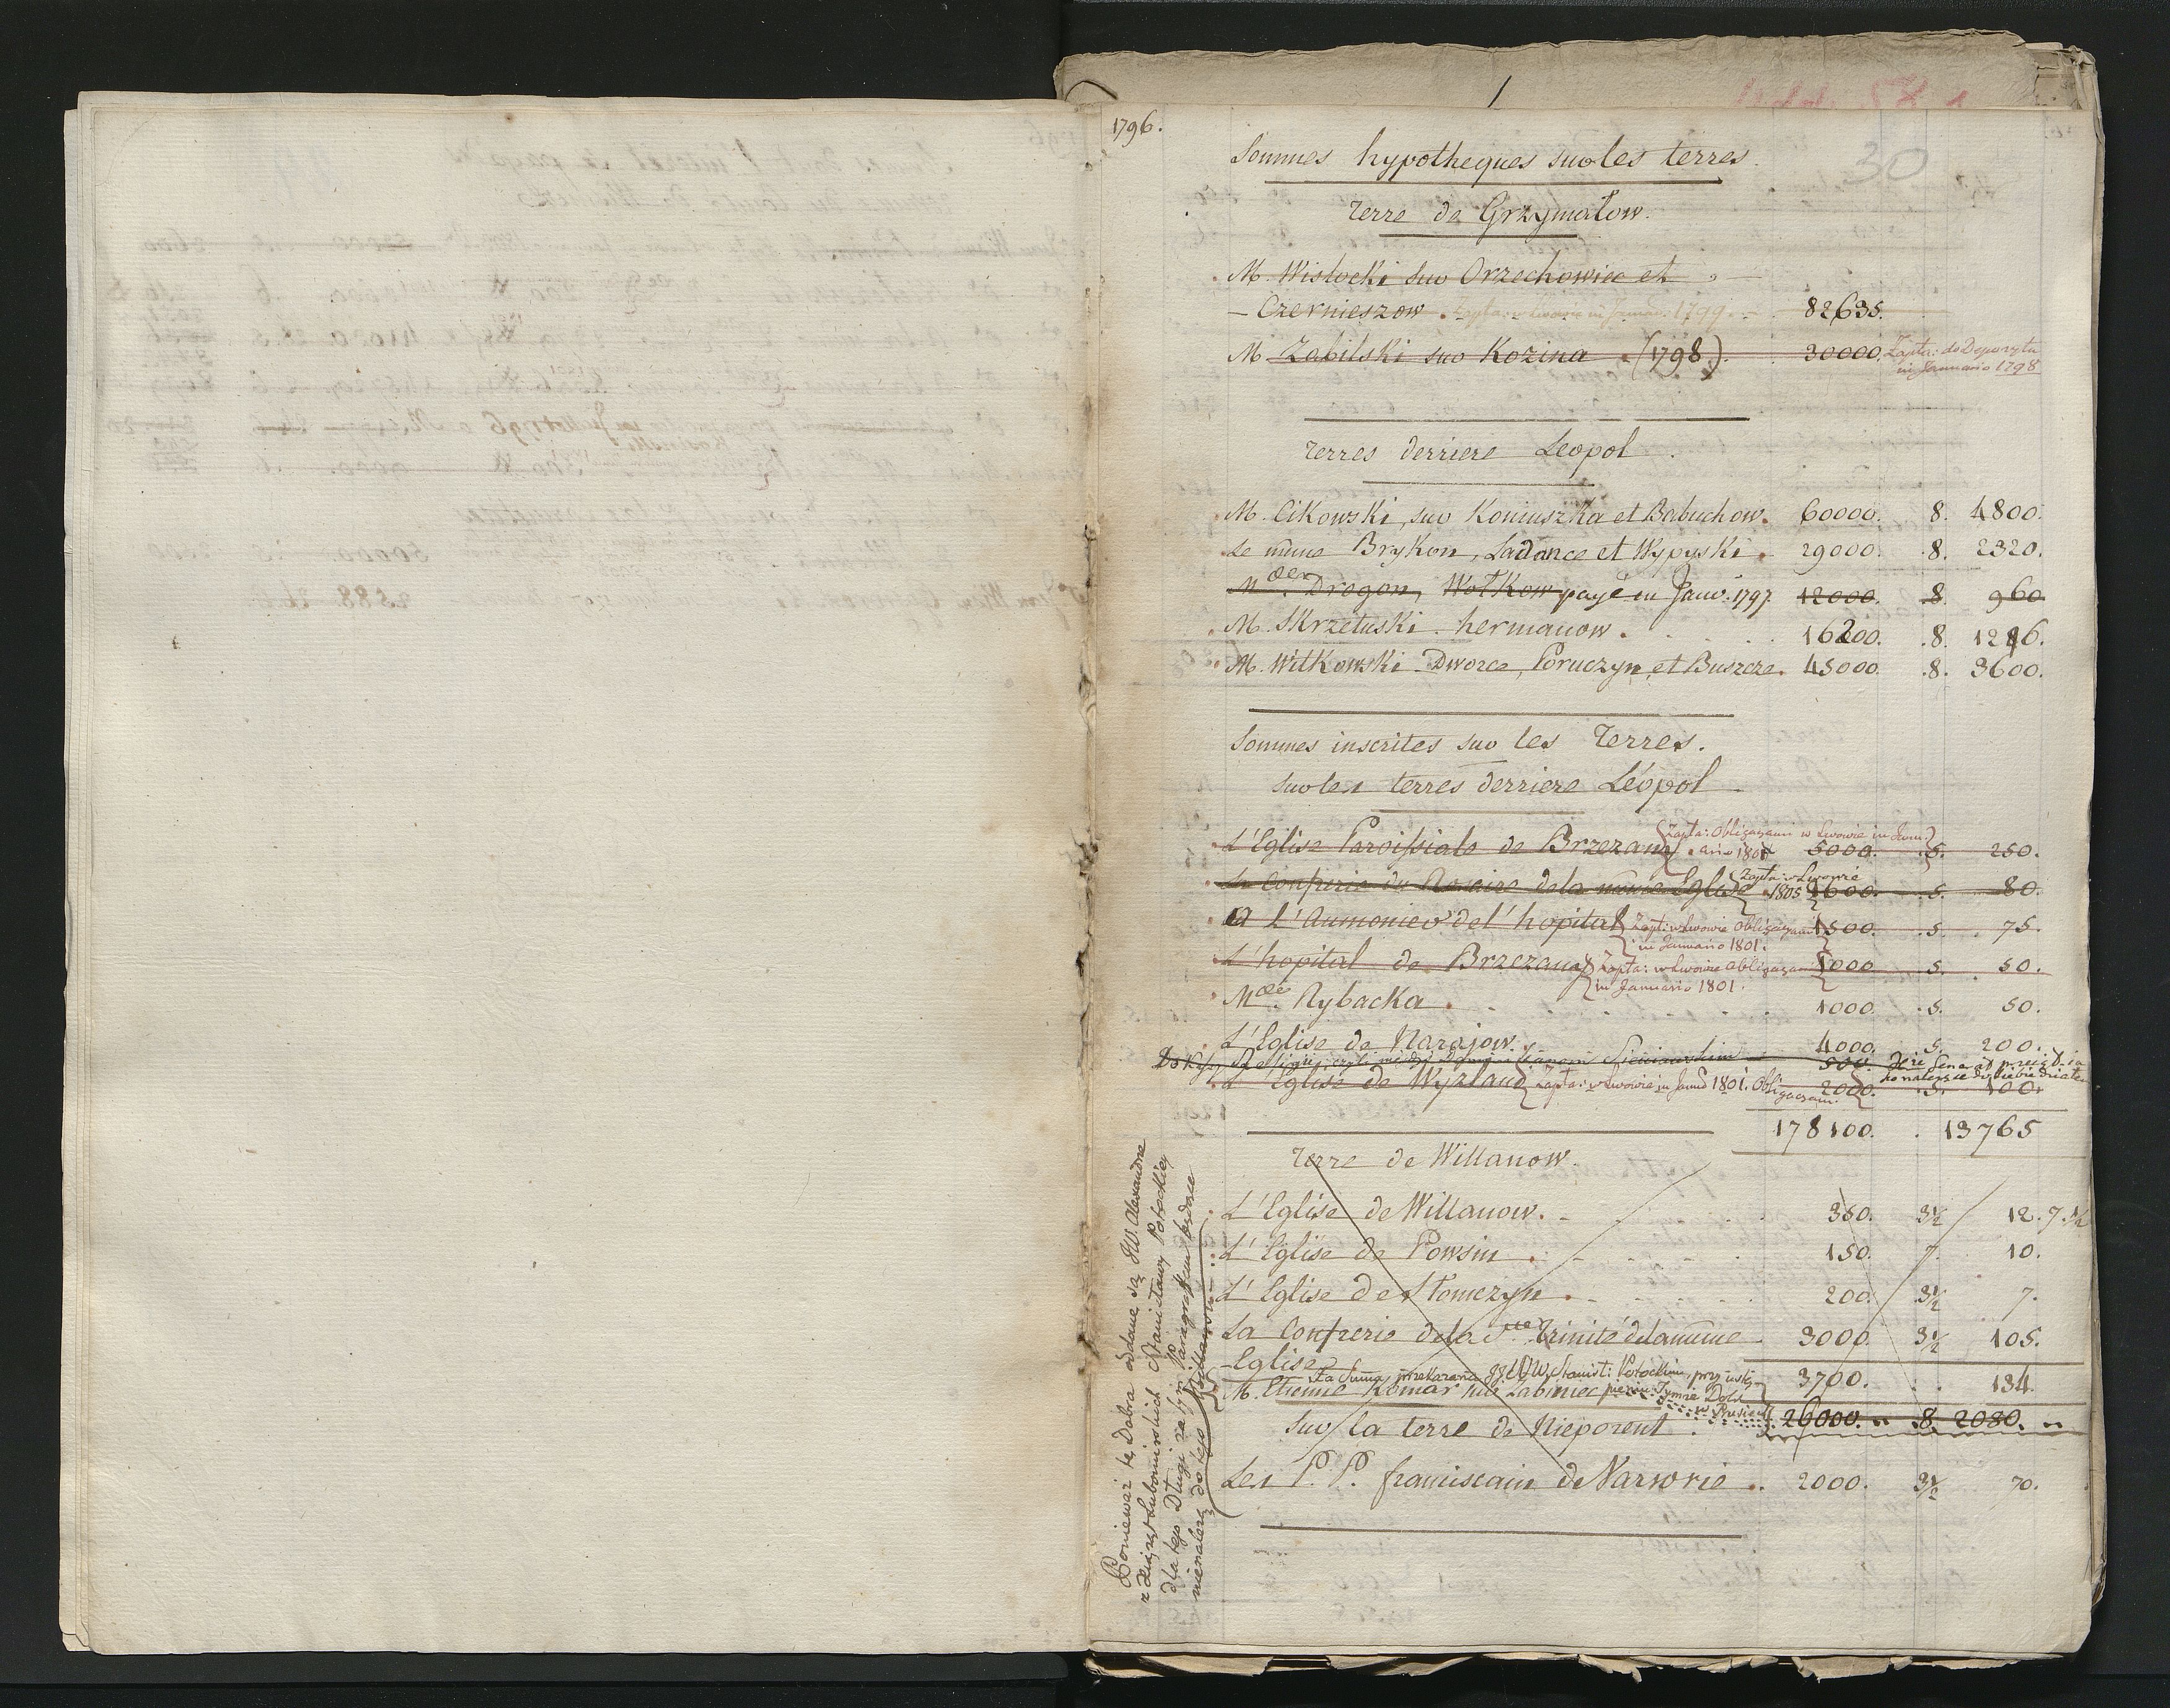 1
1796.
30
Sommes hypotheques sur les terres.
Terre de Grzymałow.
M. Wisłocki sur Orzechowiec et
Czernieszow . Zapła: w Lwowie in Januar. 1799. 82635.
M Zabilski sur Kozina . (1798). 30000. Zapła: do Depozytu
in Januario 1798
Terres derriere Leopol.
M. Cikowski, sur Koniuszka et Babuchow. 60000. 8. 4800.
Le même Brykon, Ladance et Wypyski. 29000. 8. 2320.
Mde. Drogon, Wołkow payé en Janv. 1797. 12000. 8. 960
M. Skrzetuski. hermanow. 16200. 8. 1286.
M. Witkowski. Dworce, Poruczyn, et Buszcze. 45000. 8. 3600.
Sommes inscrites sur les Terres.
sur les terres derriere Léopol
L'Eglise Paroissiale de Brzezany { Zapła: Obligacyami w Lwowie in Janu-
ario 1801 } 5000. 5. 250.
La Confrerie du Rosaire de la même Eglise { Zapła: w Lwowie
1805 } 1600. 5. 80.
A l'Aumonier de l'hopital { Zapł: w Lwowie Obligacyami
in Januario 1801. } 1500. 5. 75.
L'hopital de Brzezany { Zapła: w Lwowie Obligacyami
in Januario 1801. } 1000 5. 50.
Mde. Rybacka. 1000. 5. 50.
L'Eglise de Narajow. 4000. 5. 200.
500.
L'Eglise de Wyzland { Zapła: w Lwowie in Januo 1801. Obli-
gacyam. } 2000. 5. 100.
178100. 13765
Terre de Willanow.
L'Eglise de Willanow. 350. 3½ 12. 7.½
L'Eglise de Powsin. 150. 7. 10.
L'Eglise de Słomczyn. 200. 3½ 7.
La Confrerie de la Ste Trinité de la même 3000. 3½ 105.
Eglise 3700. 134.
Ta Summa przekazana JJ WW Stanisł: Potockim, przy
M. Etienne Komar sur Zabiniec 26000. 8. 2080.
sur la terre de Nieporent.
Les P. P. franciscain de Varsovie. 2000. 3½ 70.
Poniewaz te Dobra oddane są JW. Alexandrze
z Xiążąt Lubomirskich Stanisławy Potockiey
dla tego Długi za tym Paragrafem będące
nienależą do tego